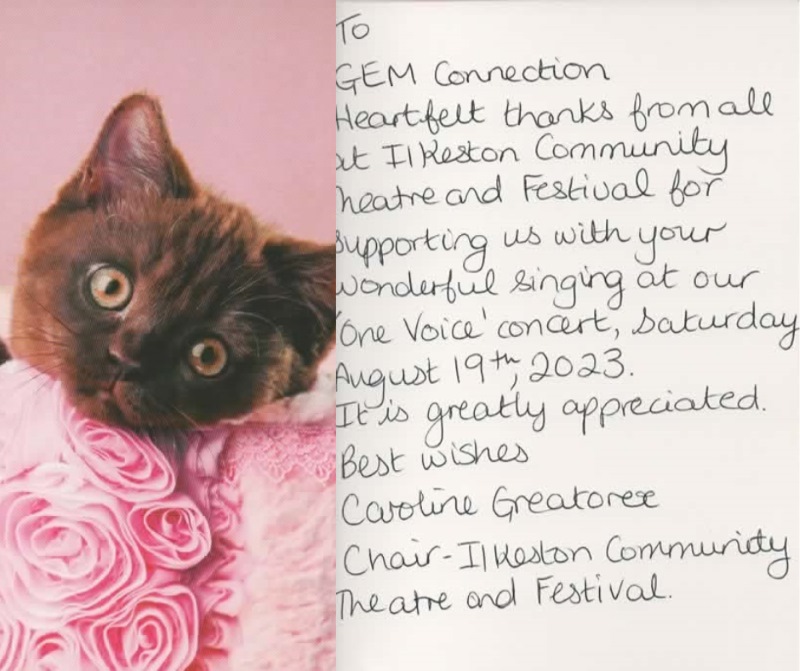 To
GEM Connection
Heartfelt thanks from all
at Ilkeston Community
Theatre and Festival for
supporting us with your
wonderful singing at our
'One Voice' concert, Saturday
August 19th, 2023.
It is greatly appreciated.
Best wishes
Caroline Greatorex
Chair - Ilkeston Community
Theatre and Festival.